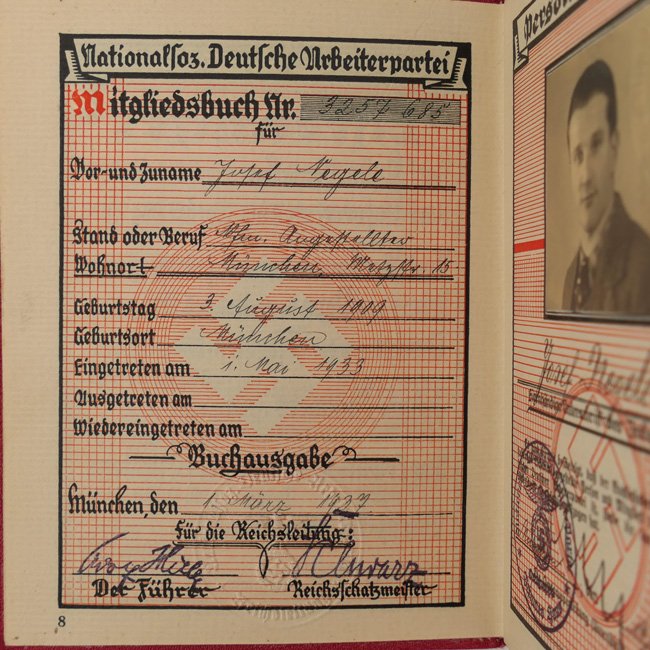 Nationalsoz. Deutsche Arbeiterpartei
Mitgliedsbuch Nr. 3257 685
für
Vor- und Zuname Josef Negele
Stand oder Beruf Kfm. Angestellter
Wohnort München, Metzstr. 15
Geburtstag 3. August 1909
Geburtsort München
Eingetreten am 1. Mai 1933
Ausgetreten am
Wiedereingetreten am
Buchausgabe
München, den 1. März 1937
Für die Reichsleitung:
Schwarz
Der Führer Reichsschatzmeister
8
Josef